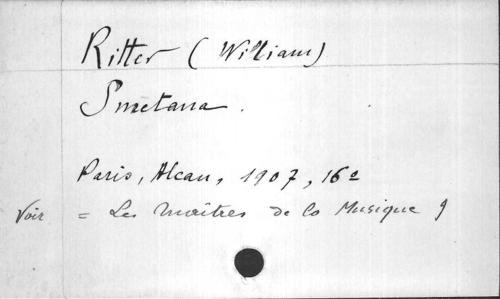 Ritter (William)
Smetana.
Paris, Alcan, 1907, 16º
Voir = Les maîtres de la Musique 9